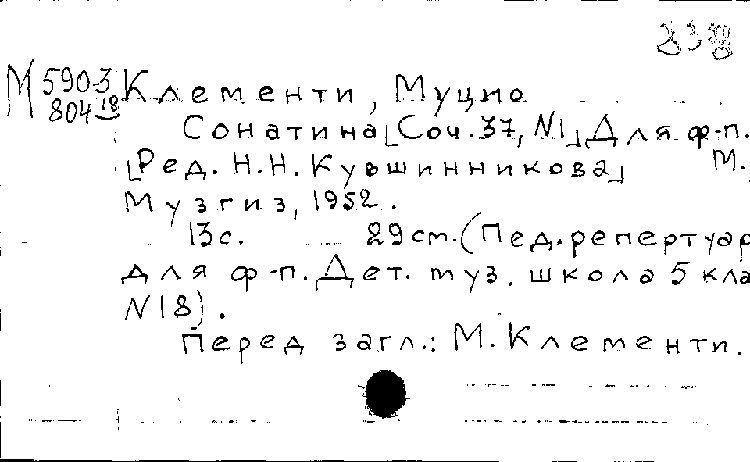 838
М 590-3 Клементи, Муцио
804 18
Сонатина [Соч. 37, N1] Для ф-п.
[Ред. Н.Н. Кувшинникова] М.,
Музгиз, 1952.
13 с. 29 см. (Пед. репертуар
для ф-п. Дет. муз. школа 5 кла
N 18).
Перед загл.: М. Клементи.